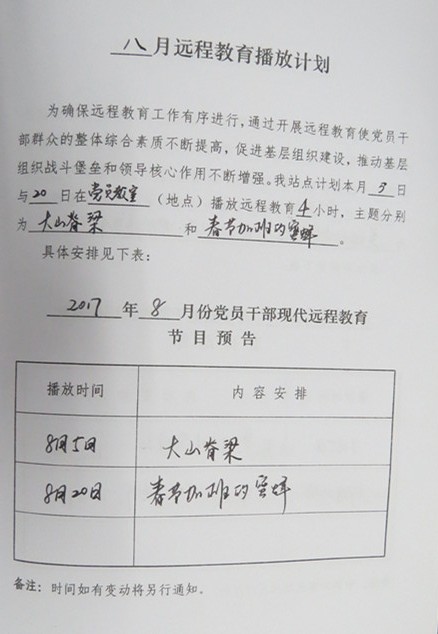 八月远程教育播放计划
为确保远程教育工作有序进行,通过开展远程教育使党员干
部群众的整体综合素质不断提高,促进基层组织建设,推动基层
组织战斗堡垒和领导核心作用不断增强。我站点计划本月 5 日
与 20 日在党员教室(地点)播放远程教育 4 小时,主题分别
为 大山脊梁 和 春节加班的蜜蜂 。
具体安排见下表:
2017 年 8 月份党员干部现代远程教育
节目预告
播放时间 内容安排
8月5日 大山脊梁
8月20日 春节加班的蜜蜂
备注:时间如有变动将另行通知。